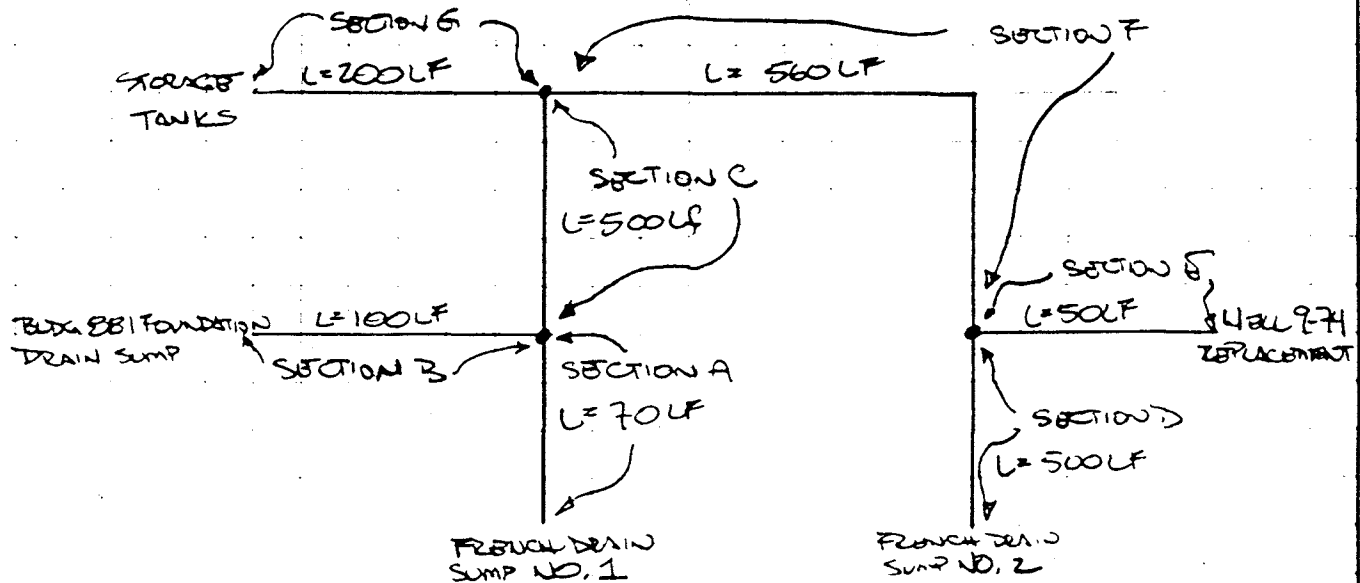 SECTION G
SECTION F
STORAGE
TANKS
L=200LF
L= 560LF
SECTION C
L=500LF
SECTION E
L=50LF
WELL 9-74
REPLACEMENT
BLDG. 881 FOUNDATION
DRAIN SUMP
L=100LF
SECTION B
SECTION A
L= 70LF
SECTION D
L= 500LF
FRENCH DRAIN
SUMP NO. 1
FRENCH DRAIN
SUMP NO. 2